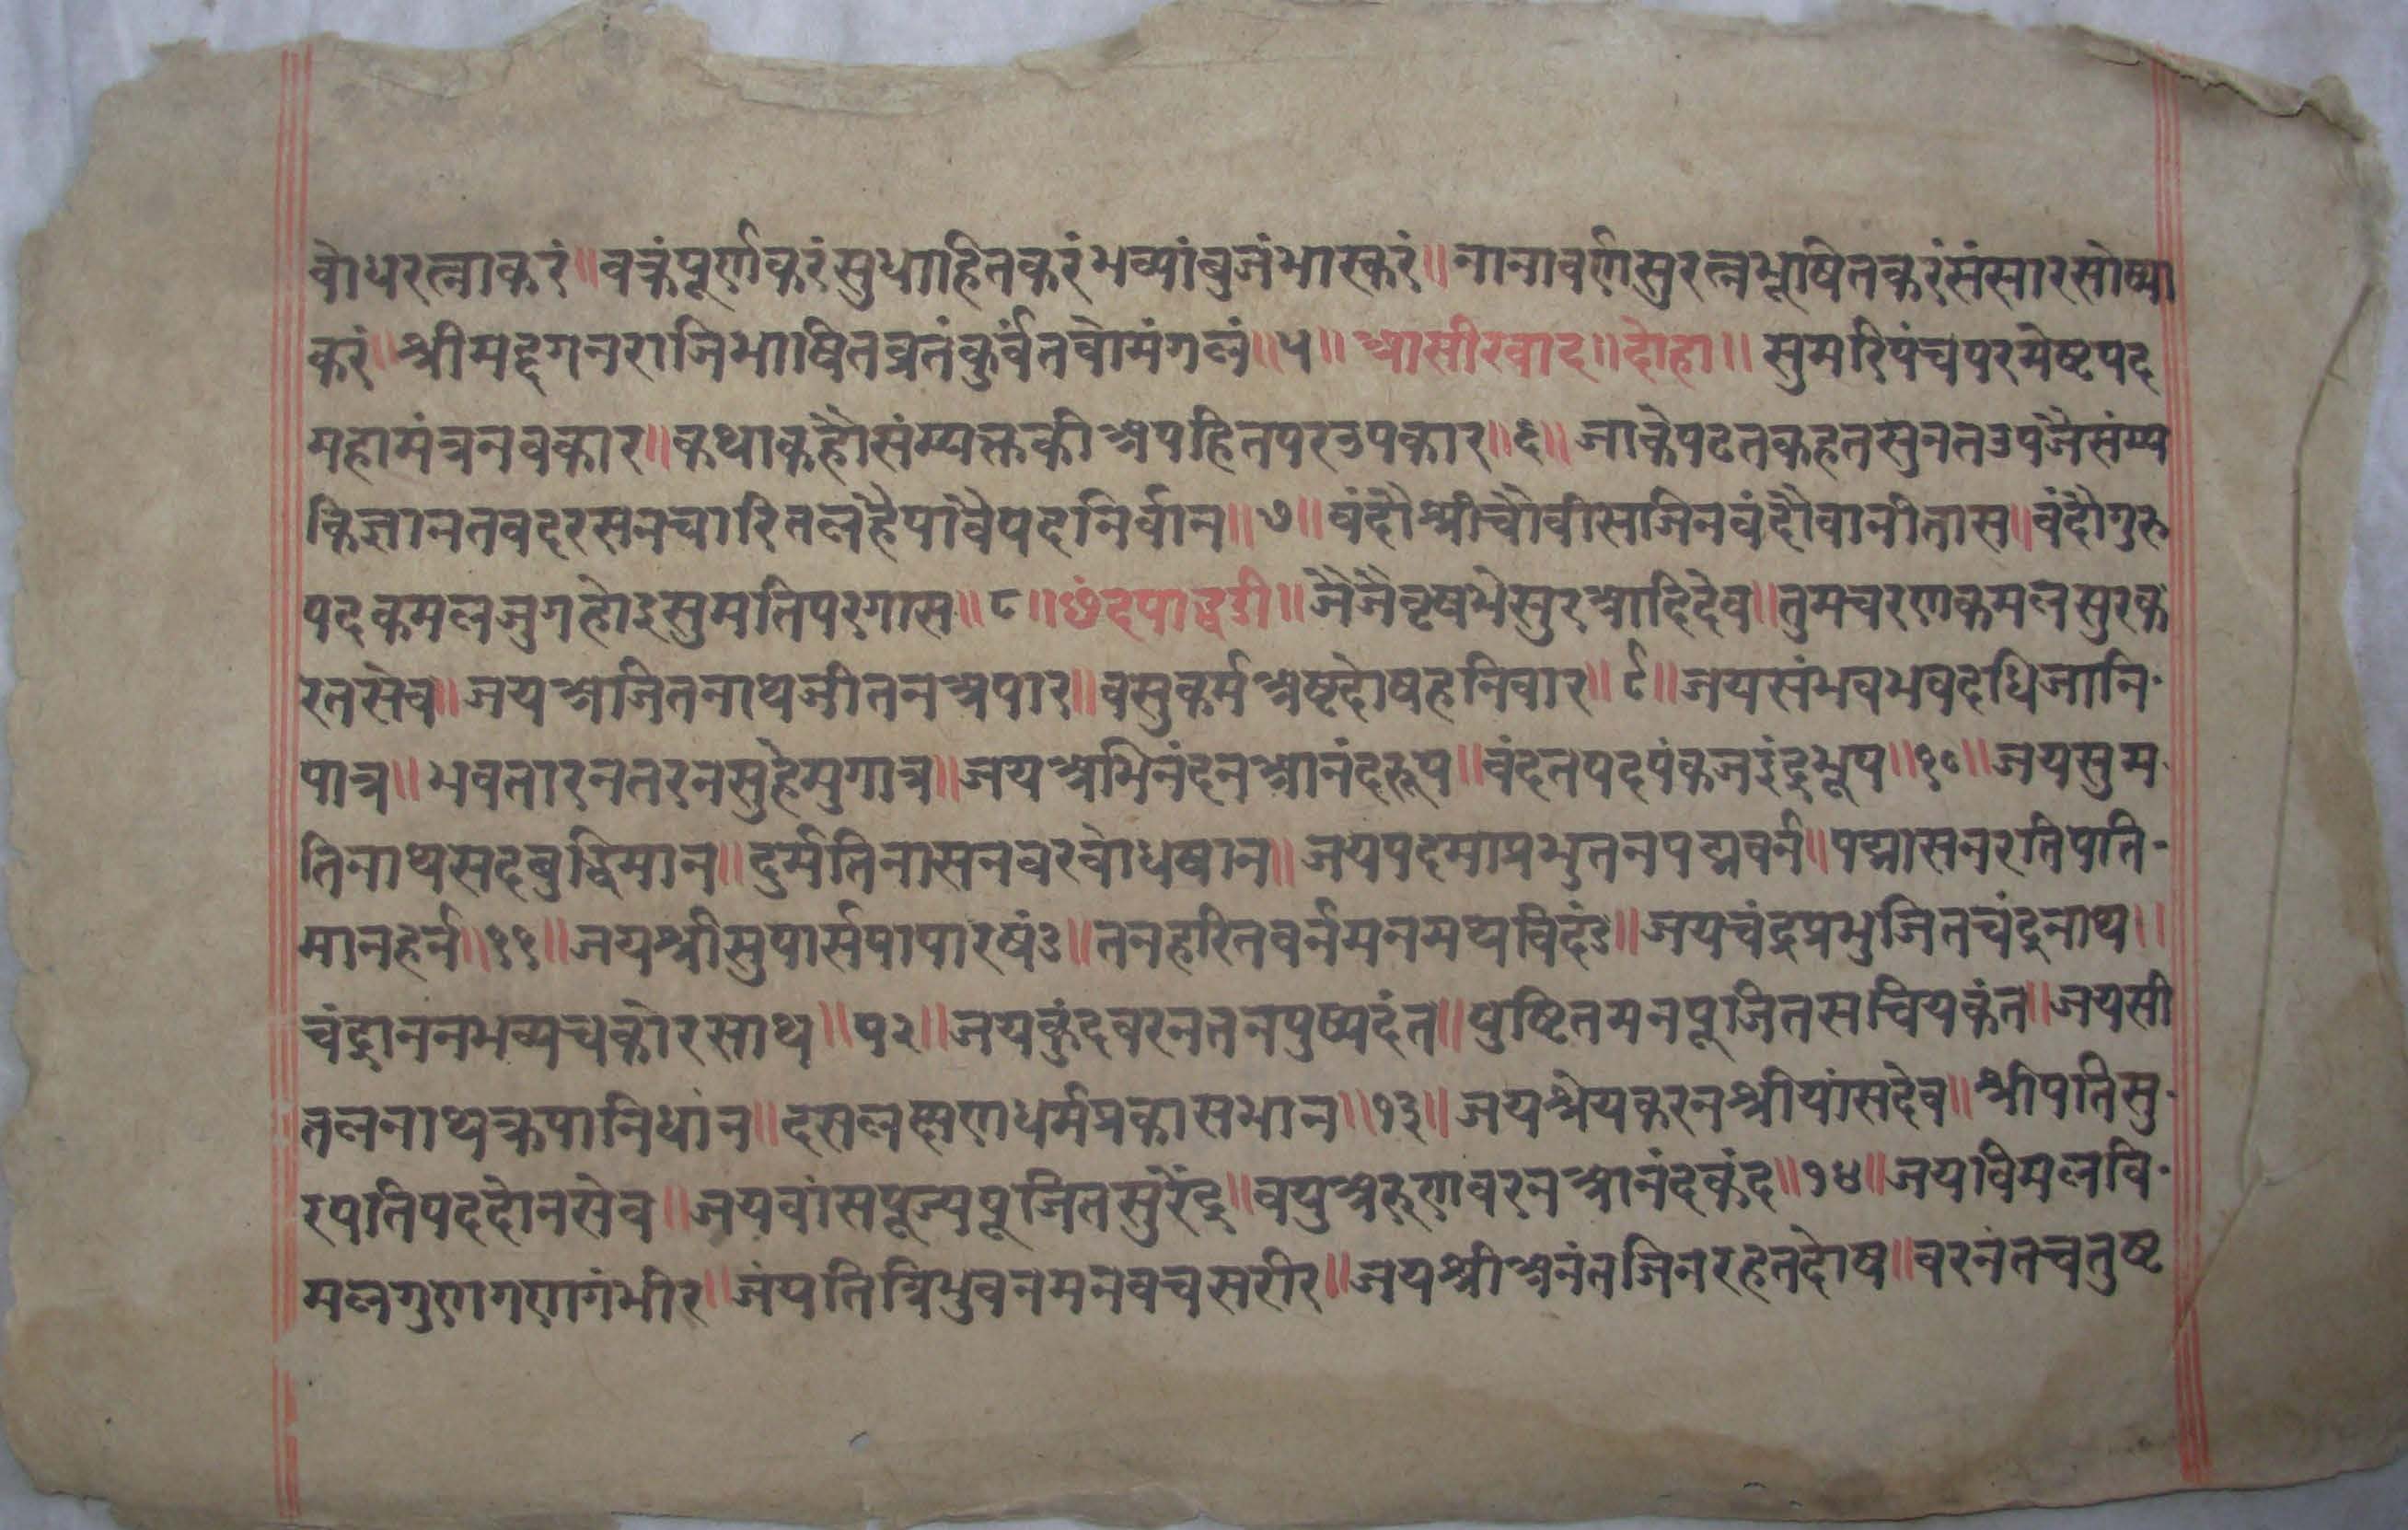 वोधरत्नाकरं॥वक्रंपूर्णकरंसुधाहितकरंभव्यांबुजंभास्करं॥नानावर्णसुरत्नभूषितकरंसंसारसोष्या
करं॥श्रीमद्दगनराजिभाषितव्रतंकुर्वंतवोमंगलं॥५॥आसीरवाद॥दोहा॥सुमरिपंचपरमेष्टपद
महामंत्रनवकार॥कथाकहौंसंम्यक्तकीअपहितपरउपकार॥६॥जाकेपढतकहतसुनतउपंजैसंम्य
किज्ञानतवदरसनचारितलंहैपावैपदनिर्वान॥७॥वंदौंश्रीचौवीसजिनवंदौंवानीतास॥वंदौंगुरु
पदकमलजुगहोइसुमतिपरगास॥८॥छंदपाद्धडी॥जैजैवृषभेसुरआदिदेव॥तुमचरणकमलसुरक
रतसेव॥जयअजितनाथजीतनअपार॥वसुकर्मअष्टदोषहनिवार॥९॥जयसंभवभवदधिजानि
पात्र॥भवतारनतरनसुहेमुगात्र॥जयअभिनंदनआनंदरूप॥वंदतपदपंकजइंदुभूप॥१०॥जयसुम
तिनाथसदबुद्धिमान॥दुर्मतिनासनवरवोधषान॥जयपदमाप्रभुतनपद्मवर्न॥पद्मासनरतिपति
मानहर्न॥११॥जयश्रीसुपार्सपापारषंउ॥तनहरितवर्नमनमथविदंड॥जयचंद्रप्रभुजितचंदुनाथ॥
चंद्राननभव्यचकोरसाथ॥१२॥जयकुंदवरनतनपुष्पदंत॥पुष्टितमनपूजितसचियकंत॥जयसी
तलनाथक्रपानिधांन॥दसलक्षणधर्मप्रकासभान॥१३॥जयश्रेयकरनश्रीयांसदेव॥श्रीपतिसु
रपतिपददोनसेव॥जयवांसपूज्यपूजितसुरेंद्र॥वयुअरुणवरनआनंदकंद॥१४॥जयविमलवि
मलगुणगणगंभीर॥जंयतित्रिभुवनमनवचसरीर॥जयश्रीअनंतजिनरहतदोष॥वरनंतचतुष्ट